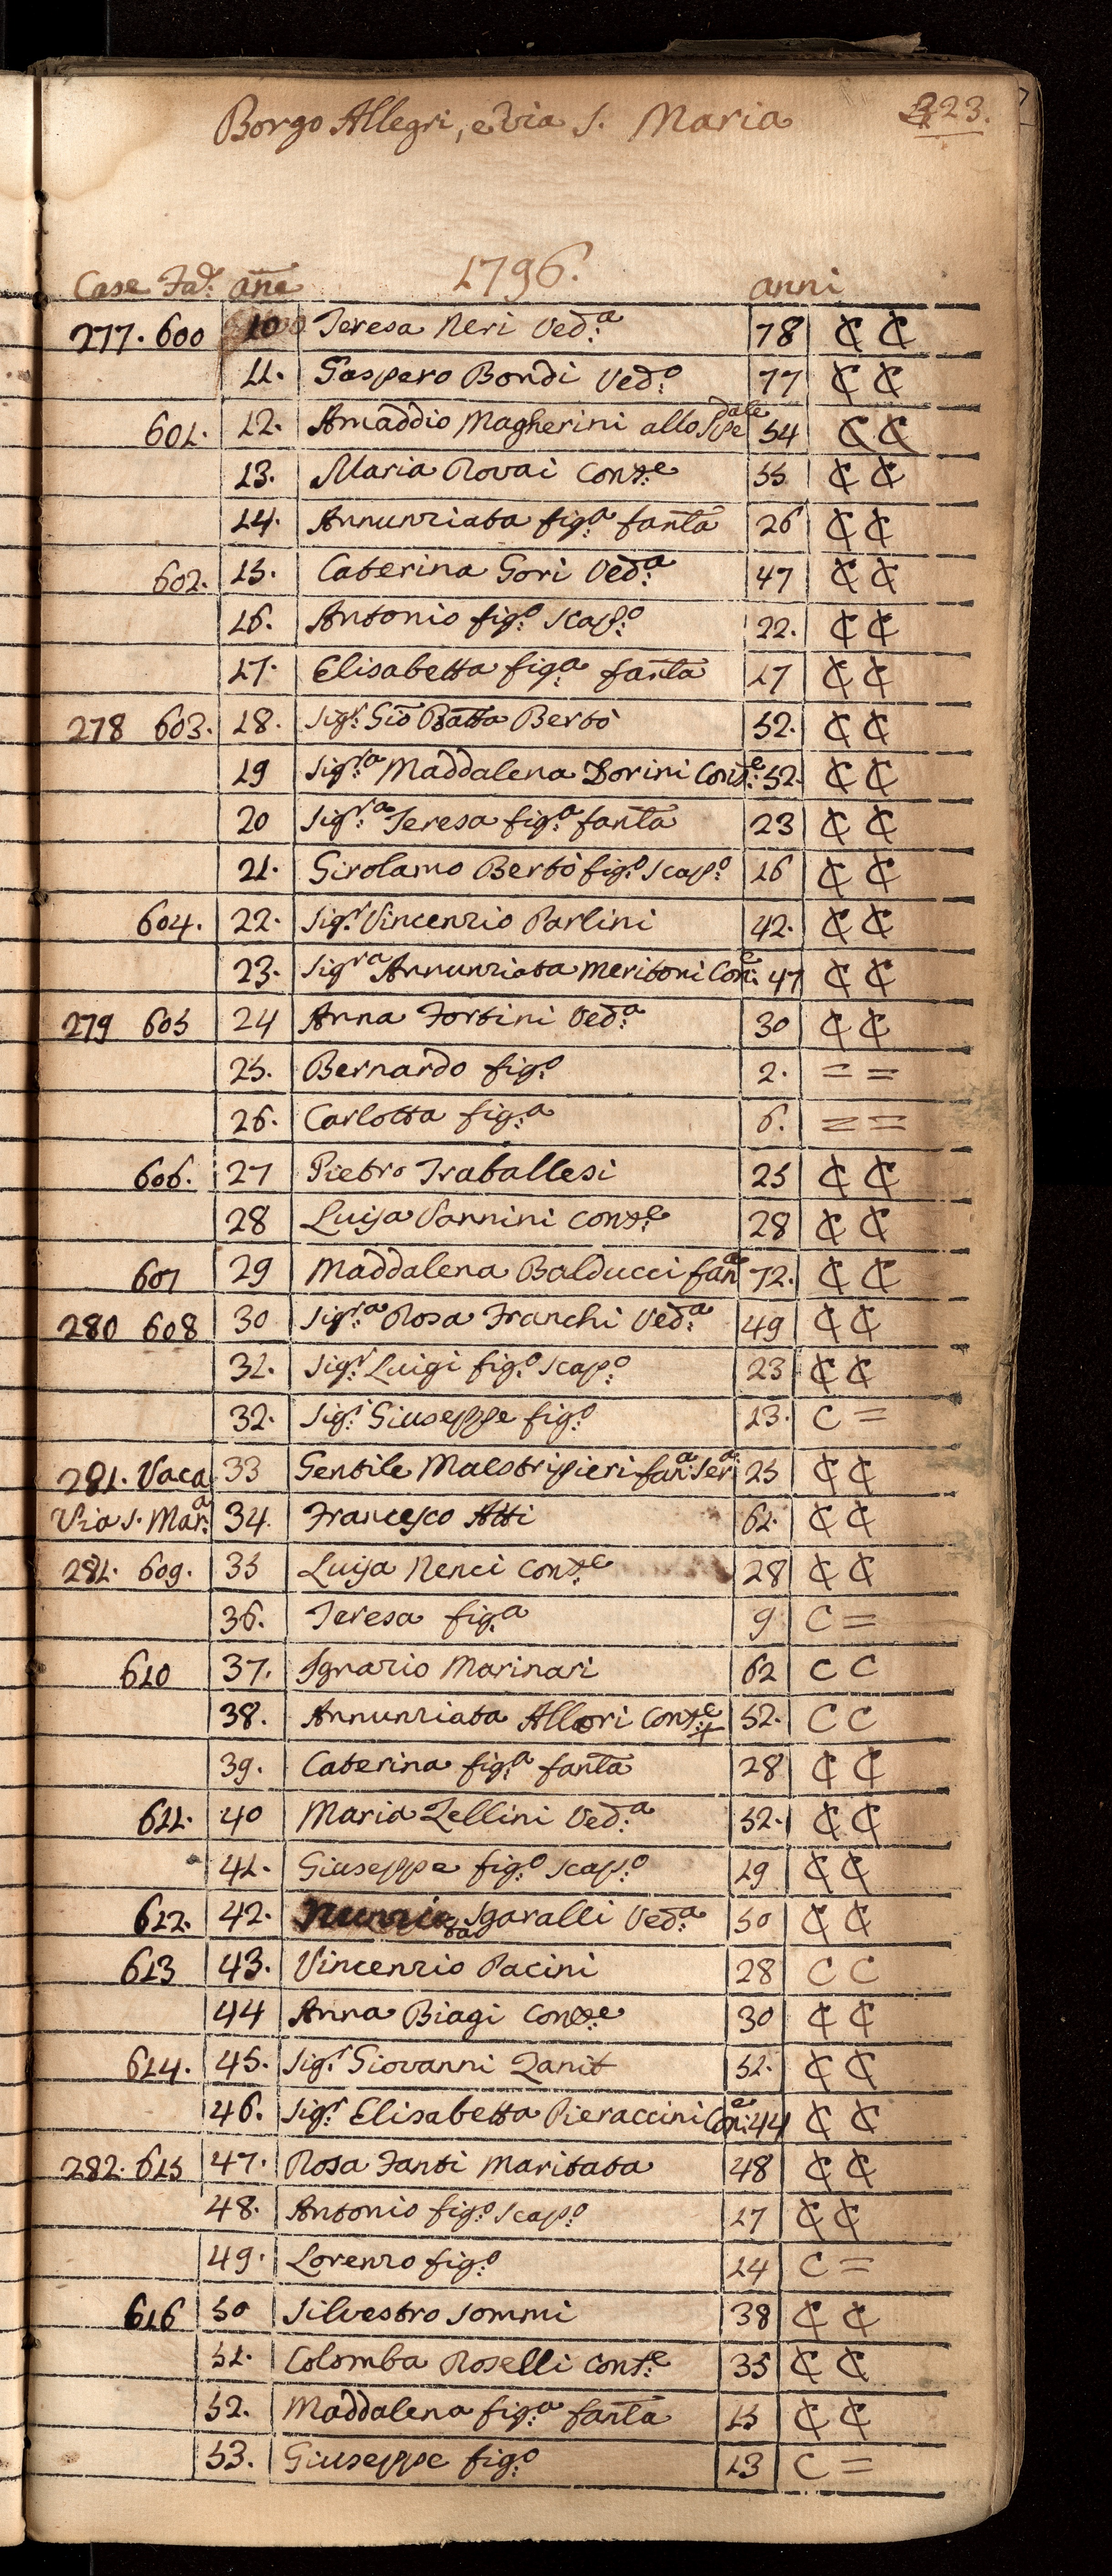 Borgo Allegri, e via S. Maria 223.
1796.
Case Fad: añe anni
277. 600 10 Teresa Neri Ved:a 78 ₵ ₵
11. Gaspero Bondi Ved:o 77 ₵ ₵
601. 12. Amaddio Magherini allo Spedale 54 ₵ ₵
13. Maria Rovai Conte 55 ₵ ₵
14. Annunziata fig:a fanta 26 ₵ ₵
602. 15. Caterina Gori Ved:a 47 ₵ ₵
16. Antonio fig:o scap:o 22. ₵ ₵
17. Elisabetta fig:a fanta 17 ₵ ₵
278 603. 18. Sigr: Gio Batta Bertò 52. ₵ ₵
19 Sig:ra Maddalena Dorini Conte 52. ₵ ₵
20 Sig:ra Teresa fig:a fanta 23 ₵ ₵
21. Girolamo Bertò fig:o scap:o 16 ₵ ₵
604. 22. Sigr: Vincenzio Parlini 42. ₵ ₵
23. Sigra Annunziata Meritoni Con:e 47 ₵ ₵
279 605 24 Anna Fortini Ved:a 30 ₵ ₵
25. Bernardo fig:o 2. = =
26. Carlotta fig:a 6. = =
606. 27 Pietro Traballesi 25 ₵ ₵
28 Luisa Vannini Conte 28 ₵ ₵
607 29 Maddalena Balducci fana 72. ₵ ₵
280 608 30 Sig:ra Rosa Franchi Ved:a 49 ₵ ₵
31. Sigr: Luigi fig:o scap:o 23 ₵ ₵
32. Sigr: Giuseppe fig:o 13. C =
281. Vaca 33 Gentile Maestripieri fan:a Ser:a 25 ₵ ₵
Via S. Mar:a 34. Francesco Atti 61. ₵ ₵
281. 609. 35 Luisa Nenci Conte 28 ₵ ₵
36. Teresa fig:a 9 C =
610 37. Ignazio Marinari 62 C C
38. Annunziata Allori Conte 52. C C
39. Caterina fig:a fanta 28 ₵ ₵
611. 40 Maria Zellini Ved:a 52. ₵ ₵
41. Giuseppe fig:o scap:o 19 ₵ ₵
612. 42. Nunziata Sgaralli Ved:a 50 ₵ ₵
613 43. Vincenzio Pacini 28 C C
44 Anna Biagi Conte 30 ₵ ₵
614. 45. Sigr: Giovanni Zanit 52. ₵ ₵
46. Sigr: Elisabetta Pieraccini Con:e 44 ₵ ₵
282. 615 47. Rosa Fanti Maritata 48 ₵ ₵
48. Antonio fig:o scap:o 17 ₵ ₵
49. Lorenzo fig:o 14 C =
616 50 Silvestro Sommi 38 ₵ ₵
51. Colomba Roselli Conte 35 ₵ ₵
52. Maddalena fig:a fanta 15 ₵ ₵
53. Giuseppe fig:o 13 C =